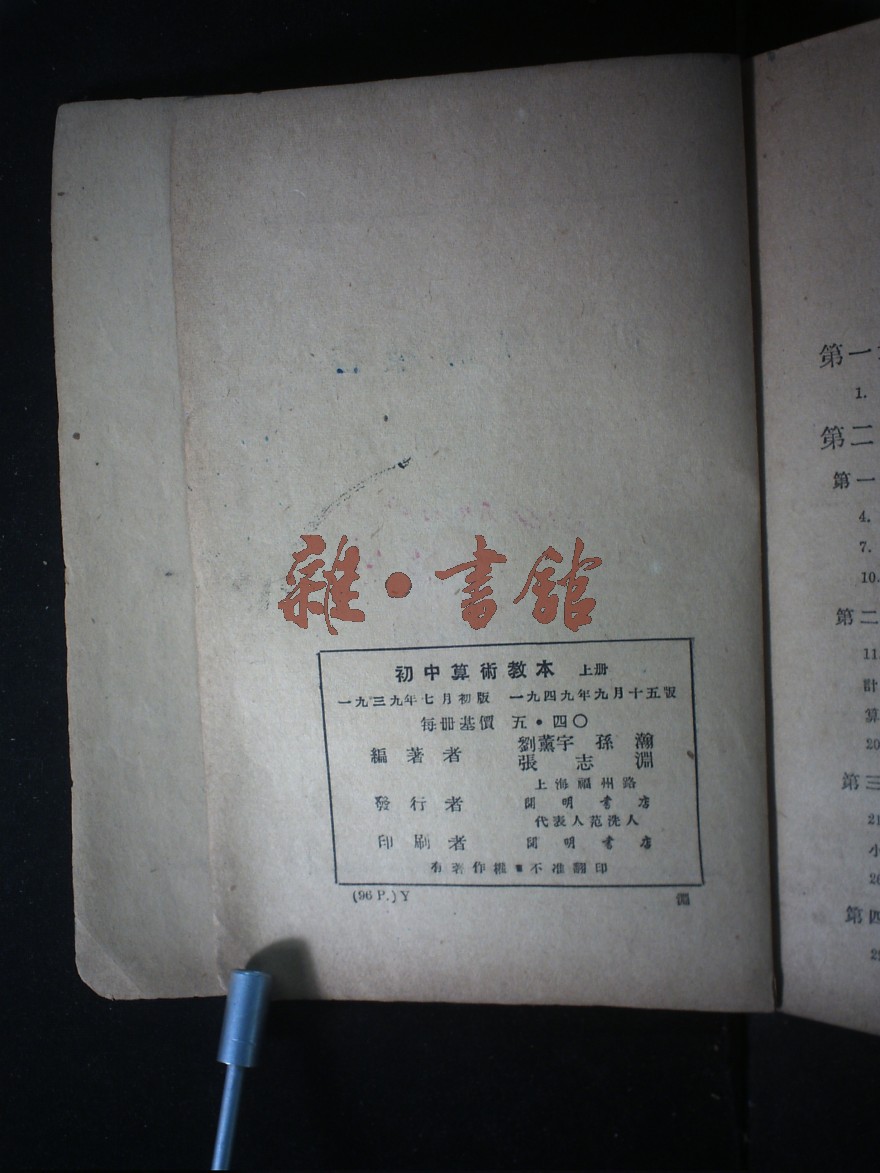 雜・書館
初中算術教本 上册
一九三九年七月初版 一九四九年九月十五版
每册基價 五・四〇
編著者 劉薰宇 孫瀚
張志淵
上海福州路
發行者 開明書店
代表人范洗人
印刷者 開明書店
有著作權不准翻印
(96 P.) Y
第一
1.
第二
第一
4.
7.
10.
第二
11.
計
算
20
第三
21
小
26
第四